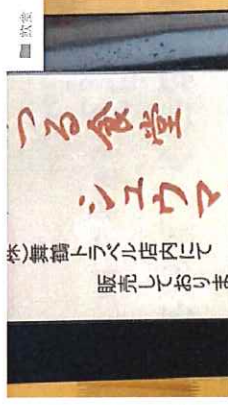 つる食堂
シュウマ
株)舞鶴トラベル店内にて
販売しておりま